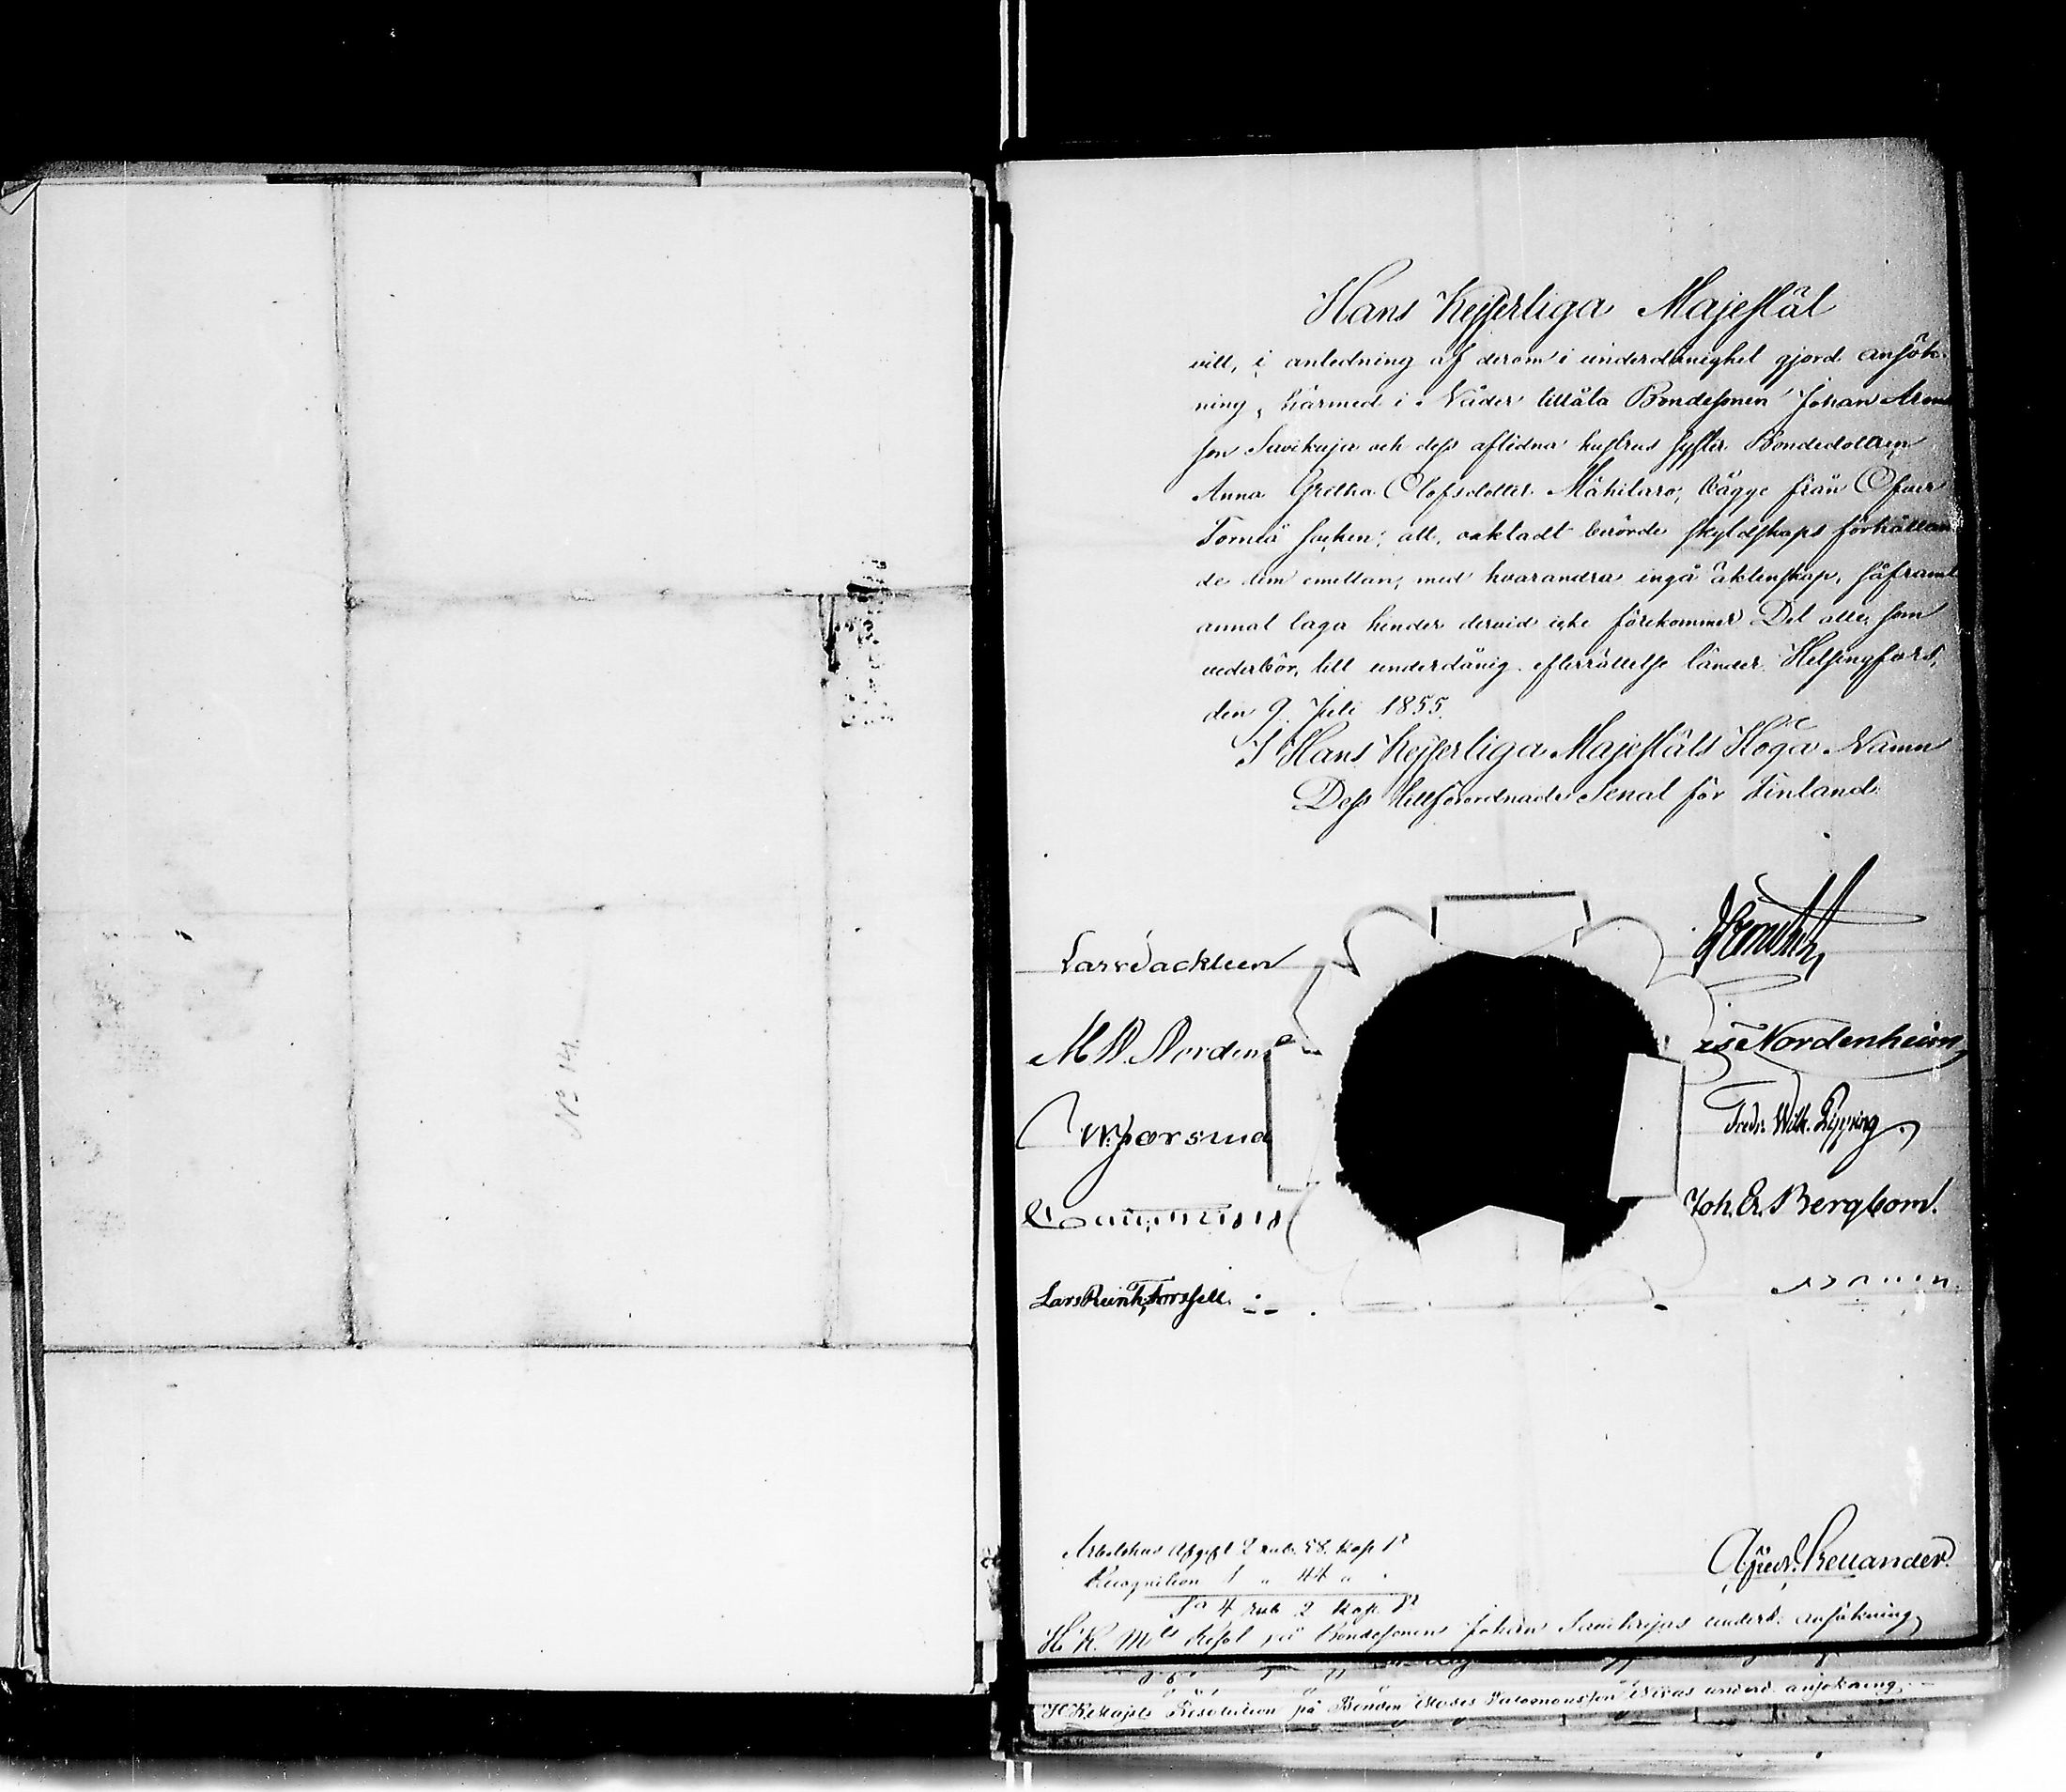 No 14.
Hans Kejserliga Majestät
vill, i anledning af derom i underdånighet gjord ansök-
ning, härmed i Nåder tillåta Bondesonen Johan Arons
son Savikuja och dess aflidna hustrus syster Bondedottren
Anna Gretha Olofsdotter Mähilaro, bägge från Öfver
Torneå socken, att, oakladt berörde skyldskaps förhållan
de dem emellan, med hvarandra ingå äktenskap, såframt
annat laga hinder dervid icke förekommer. Det alle, som
vederbör, till underdånig efterrättelse länder. Helsingfors,
den 9 Juli 1855.
I Hans Kejserliga Majestäts Höga Namn
Dess tillförordnade Senat för Finland
Lars Sackleen
M W Norden
Nordenheim
Fredr. Wilh. Pipping
Joh. Er. Bergbom.
Lars Reinh. Forssell
Arbetshus Afgift 2 rub. 58 kop. Sr
Recognition 1 " 44 "
Sa 4 rub 2 kop. Sr
H. K. Mts Resol på Bondesonen Johan Savikujas underd. ansökning
H K Majsts Resolution på Bonden underd. ansökning